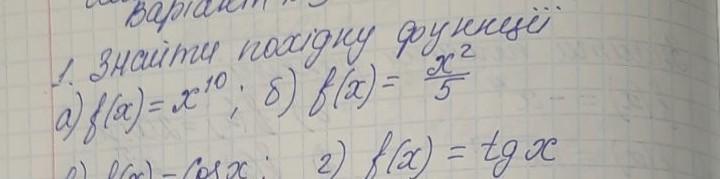 Варіант
1. Знайти похідну функції
а) f(x) = x¹⁰; б) f(x) = x²/5
в) f(x) = cos x; г) f(x) = tg x